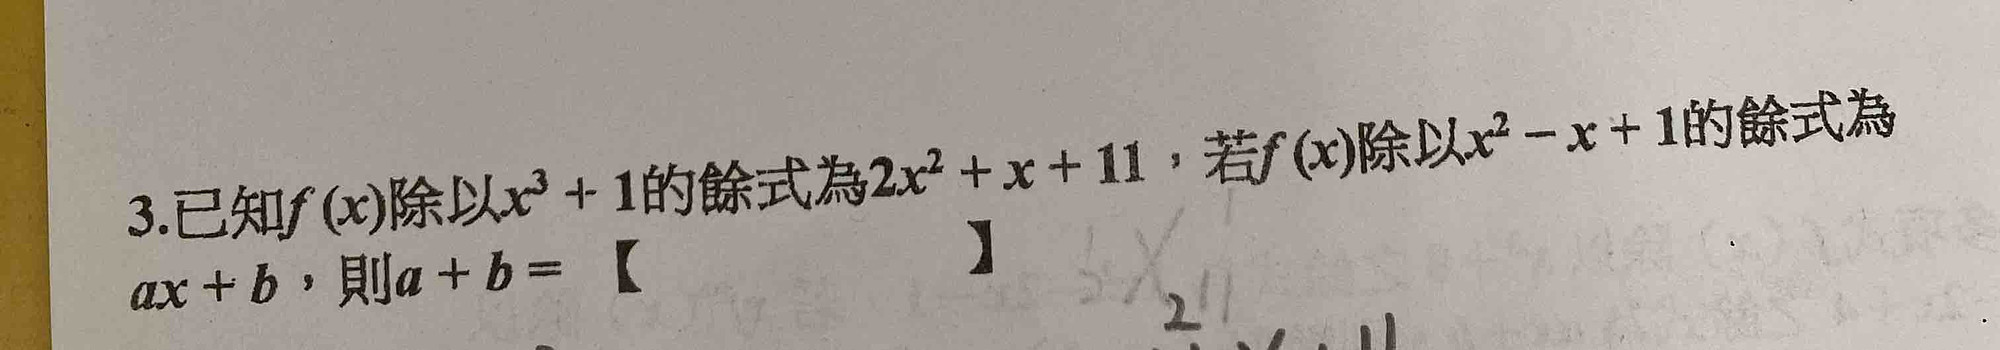 3.已知f (x)除以x³ + 1的餘式為2x² + x + 11，若f (x)除以x² − x + 1的餘式為
ax + b，則a + b = 【 】